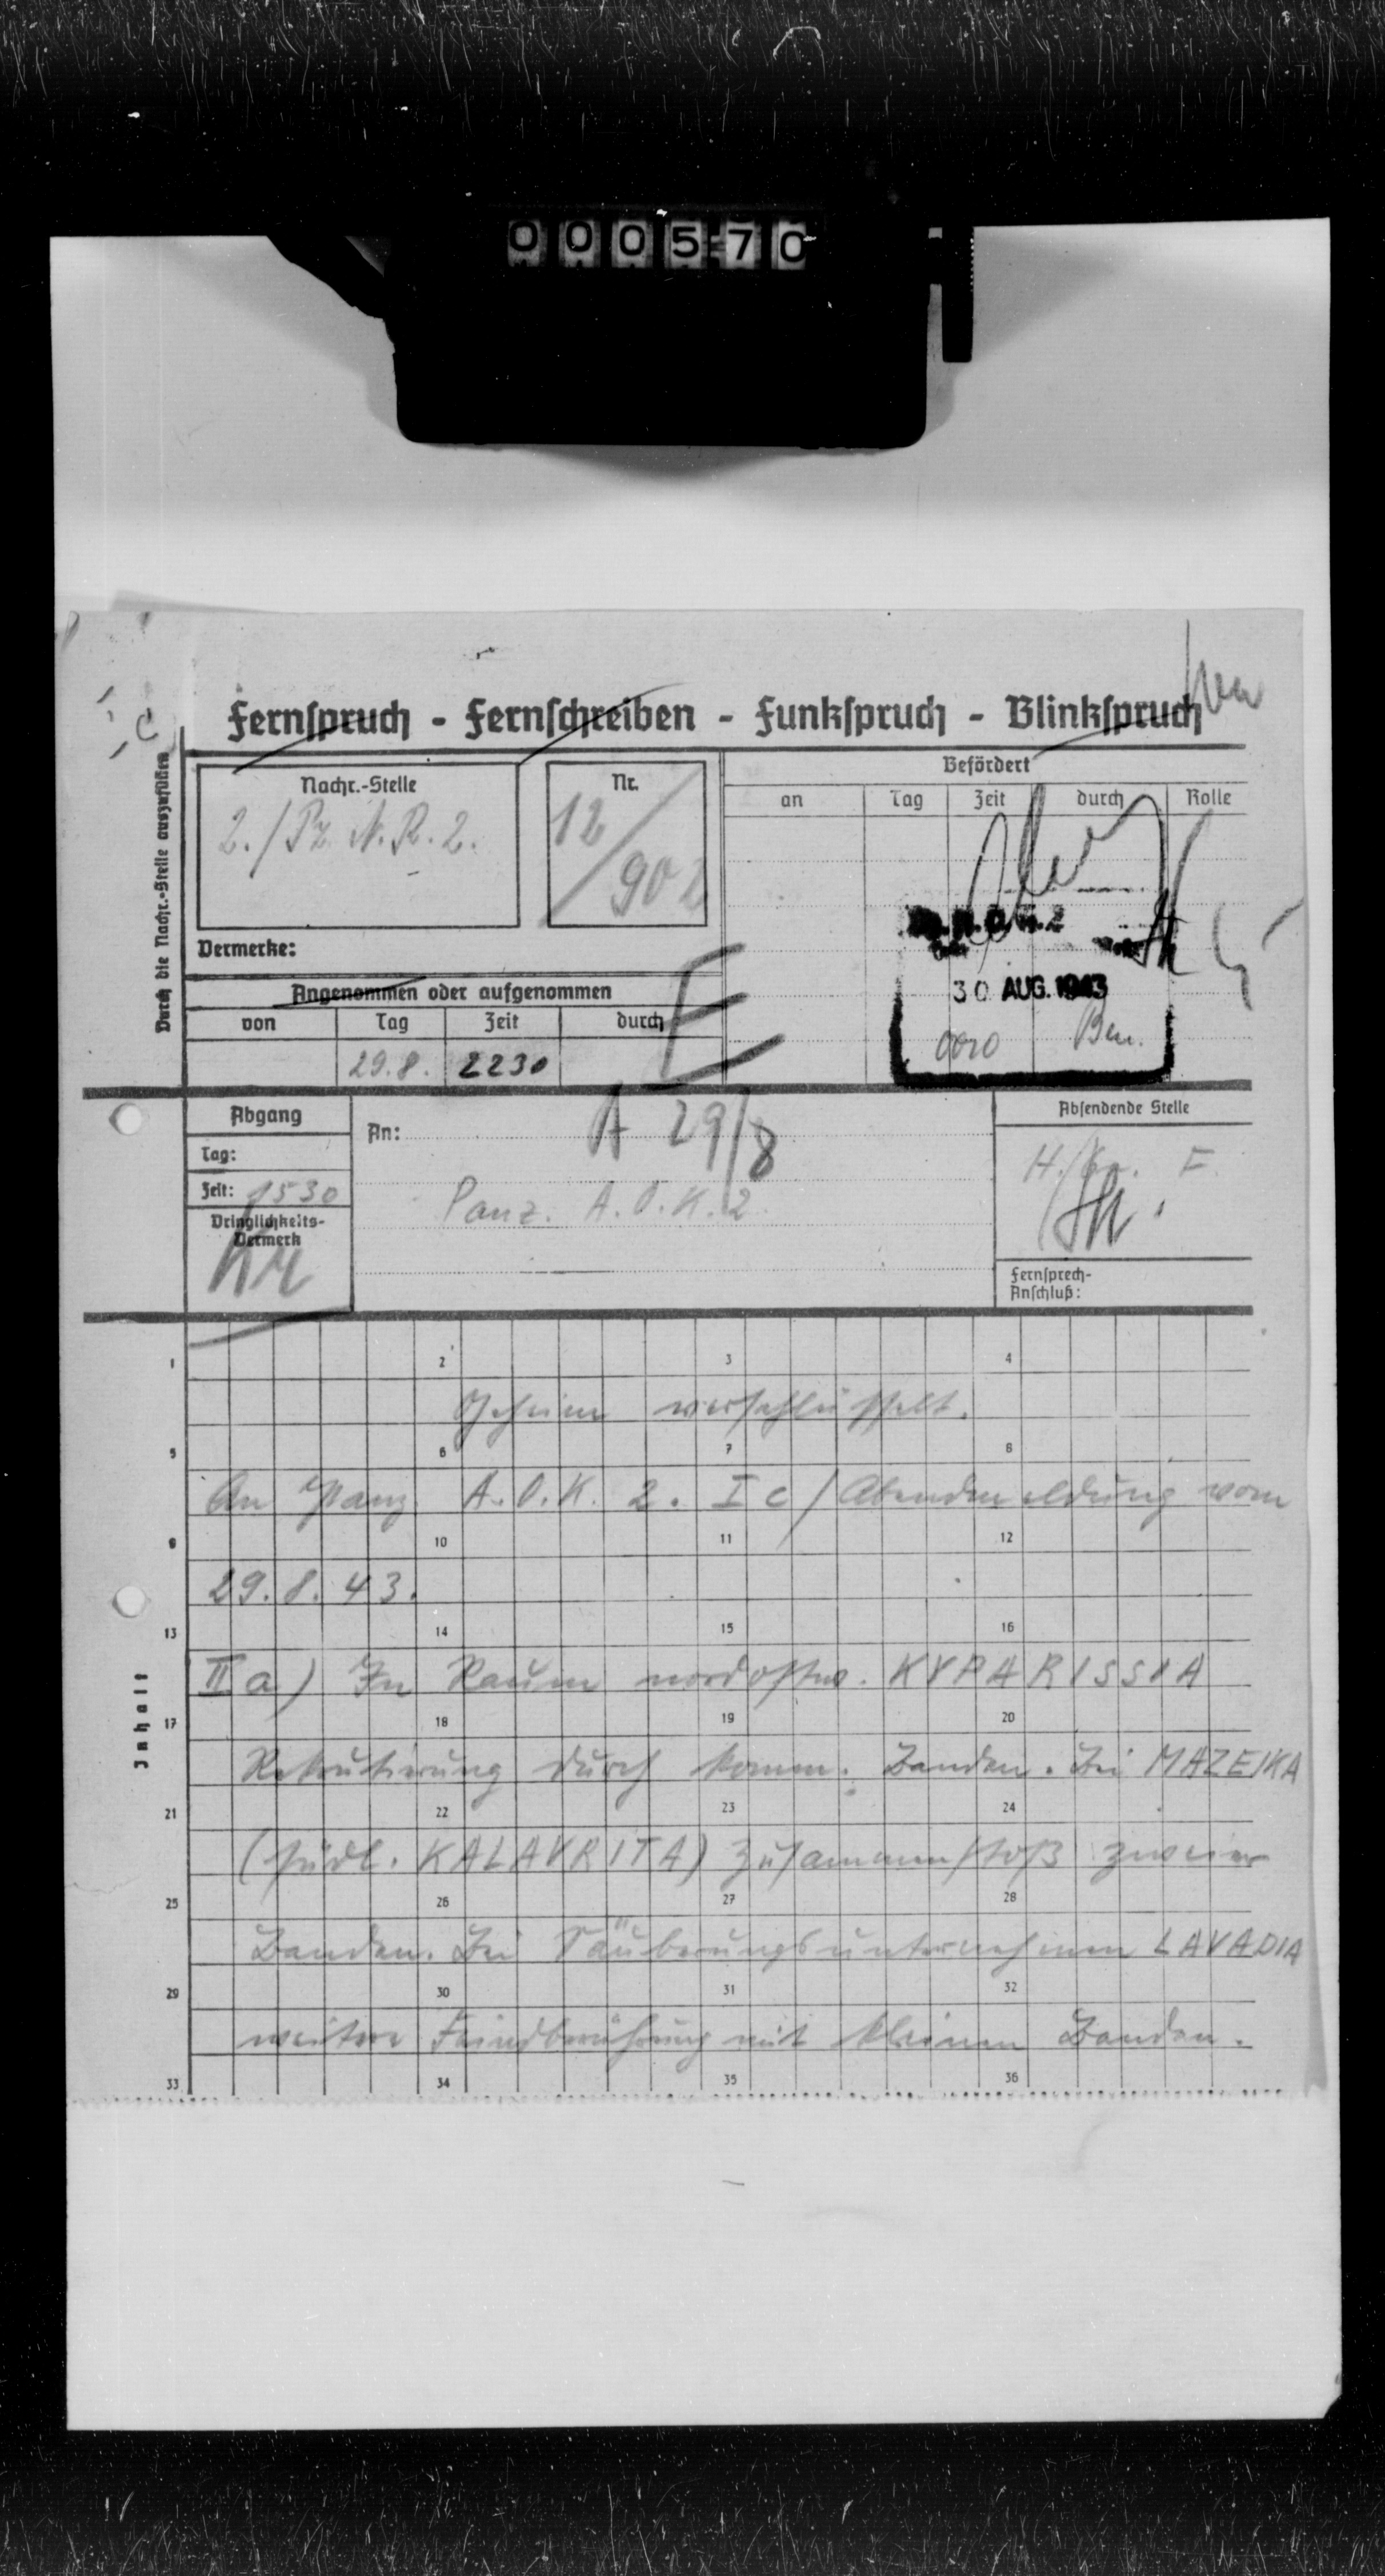 000570
Fernspruch - Fernschreiben - Funkspruch - Blinkspruch
Durch die Nachr.-Stelle auszufüllen
Nachr.-Stelle
2./Pz. N.R. 2.
Nr.
12/902
Befördert
an Tag Zeit durch Rolle
Vermerke:
Angenommen oder aufgenommen
von Tag Zeit durch
29.8. 2230
30 AUG. 1943
0010
Abgang
Tag:
Zeit: 1530
Dringlichkeits-
Vermerk
Kr
An: A 29/8
Panz. A.O.K. 2.
Absendende Stelle
H./Gr. F.
Fernsprech-
Anschluß:
Inhalt
1 2 3 4
Geheim verschlüsselt.
5 6 7 8
An Panz. A.O.K. 2. Ic / Abendmeldung vom
9 10 11 12
29.8.43.
13 14 15 16
IIa) In Raum nordostw. KYPARISSIA
17 18 19 20
Rekrutierung durch komm. Banden. Bei MAZEIKA
21 22 23 24
(südl. KALAVRITA) Zusammenstoß zweier
25 26 27 28
Banden. Bei Säuberungsunternehmen LAVADIA
29 30 31 32
weitere Feindberührung mit kleinen Banden.
33 34 35 36